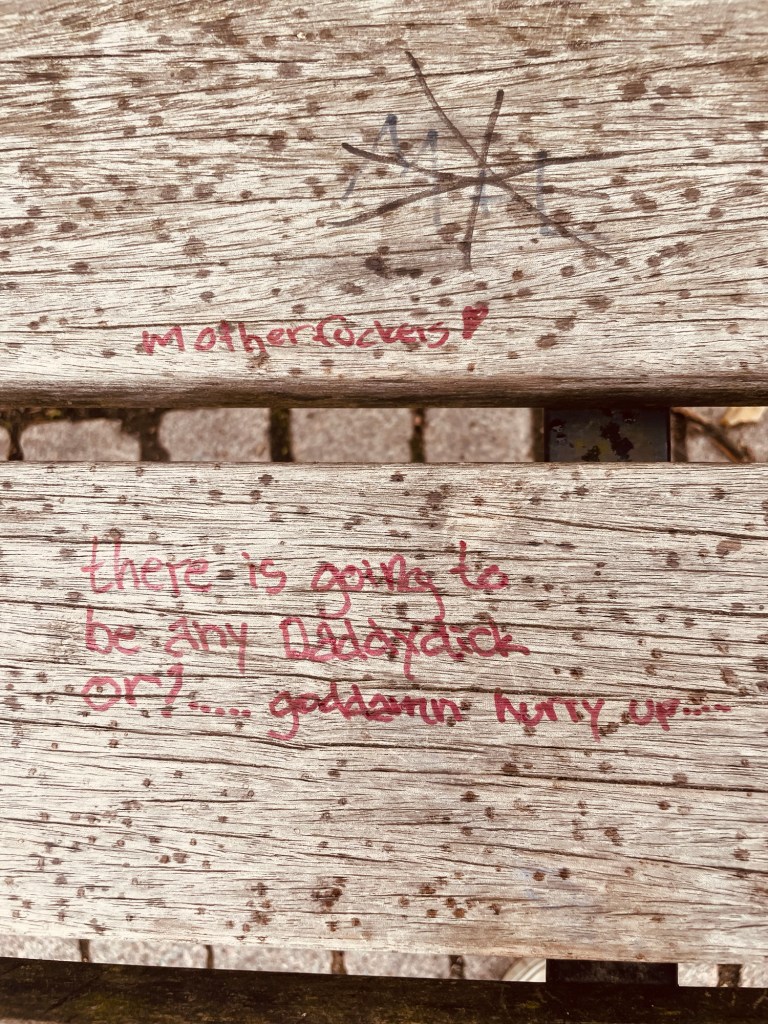 motherfuckers
there is going to
be any Daddydick
or?..... goddamn hurry up....